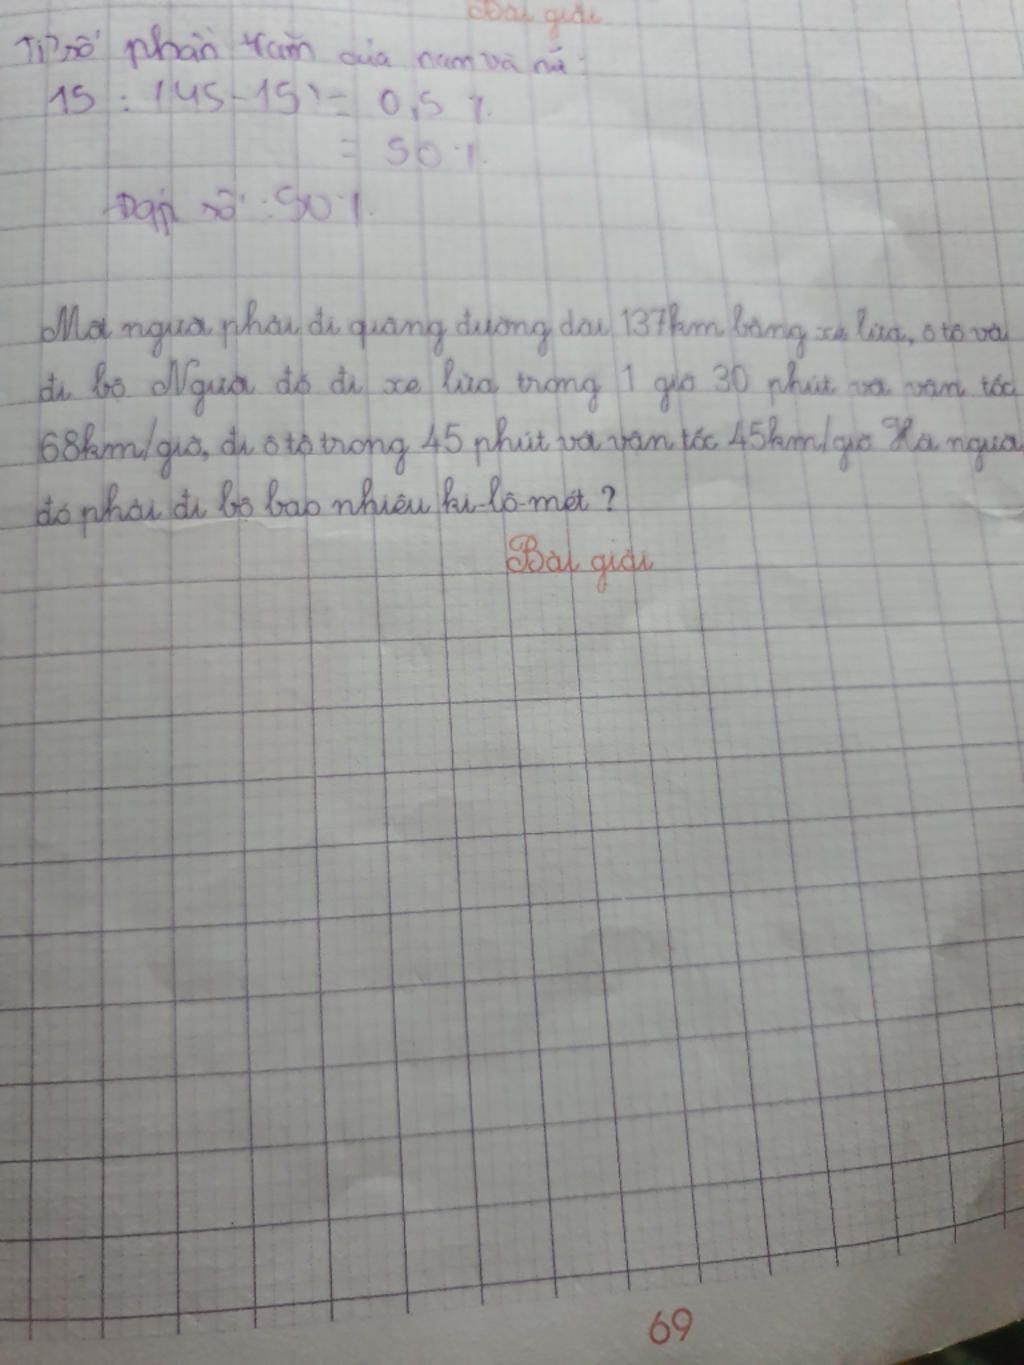 Bài giải
Tỉ số phần trăm của nam và nữ:
15 : (45 - 15) = 0,5 %
= 50 %
Đáp số : 50 %
Một người phải đi quãng đường dài 137km bằng xe lửa, ô tô và
đi bộ Người đó đi xe lửa trong 1 giờ 30 phút với vận tốc
68km/giờ, đi ô tô trong 45 phút với vận tốc 45km/giờ Hỏi người
đó phải đi bộ bao nhiêu ki-lô-mét ?
Bài giải
69